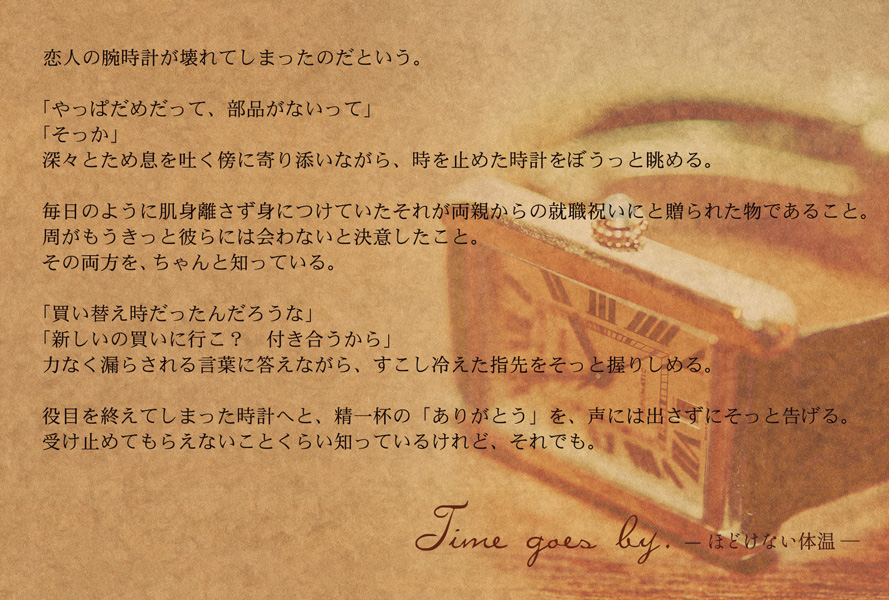 恋人の腕時計が壊れてしまったのだという。
「やっぱだめだって、部品がないって」
「そっか」
深々とため息を吐く傍に寄り添いながら、時を止めた時計をぼうっと眺める。
毎日のように肌身離さず身につけていたそれが両親からの就職祝いにと贈られた物であること。
周がもうきっと彼らには会わないと決意したこと。
その両方を、ちゃんと知っている。
「買い替え時だったんだろうな」
「新しいの買いに行こ？　付き合うから」
力なく漏らされる言葉に答えながら、すこし冷えた指先をそっと握りしめる。
役目を終えてしまった時計へと、精一杯の「ありがとう」を、声には出さずにそっと告げる。
受け止めてもらえないことくらい知っているけれど、それでも。
Time goes by. ― ほどけない体温 ―